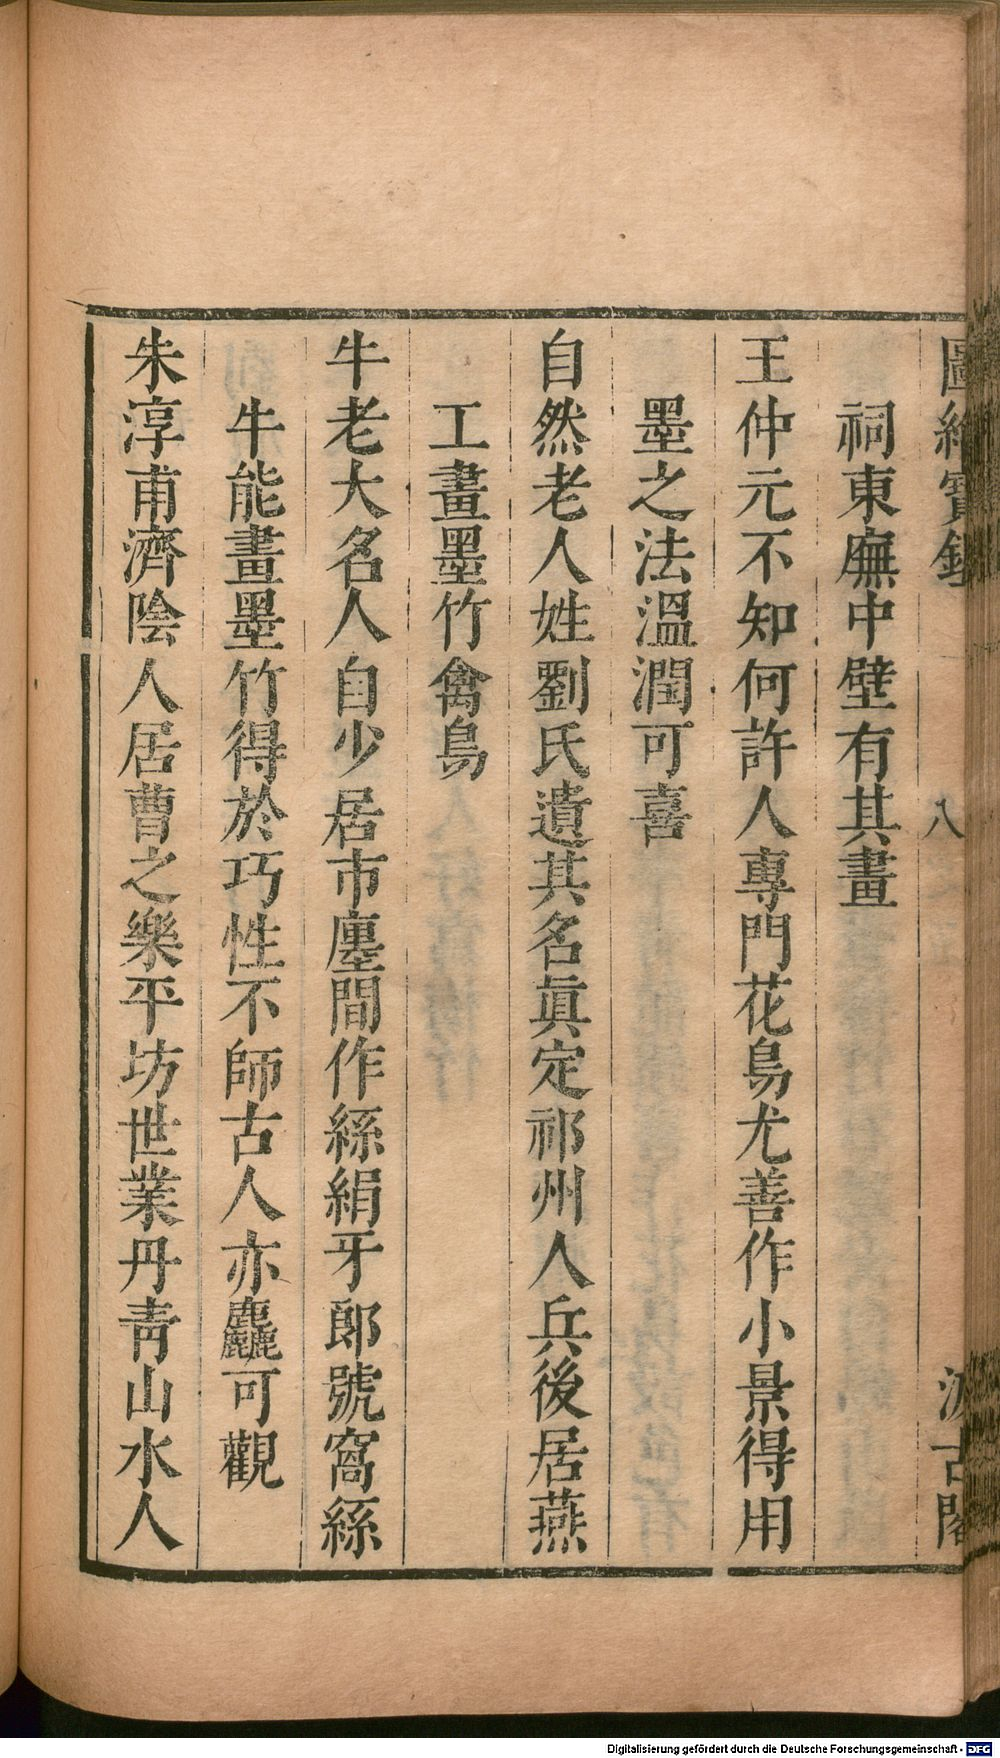 圖繪寶鑑 八 汲古閣
祠東廡中壁有其畫
王仲元不知何許人專門花鳥尤善作小景得用
墨之法溫潤可喜
自然老人姓劉氏遺其名眞定祁州人兵後居燕
工畫墨竹禽鳥
牛老大名人自少居市廛間作絲絹牙郎號窩絲
牛能畫墨竹得於巧性不師古人亦麤可觀
朱淳甫濟陰人居曹之樂平坊世業丹靑山水人
Digitalisierung gefördert durch die Deutsche Forschungsgemeinschaft - DFG